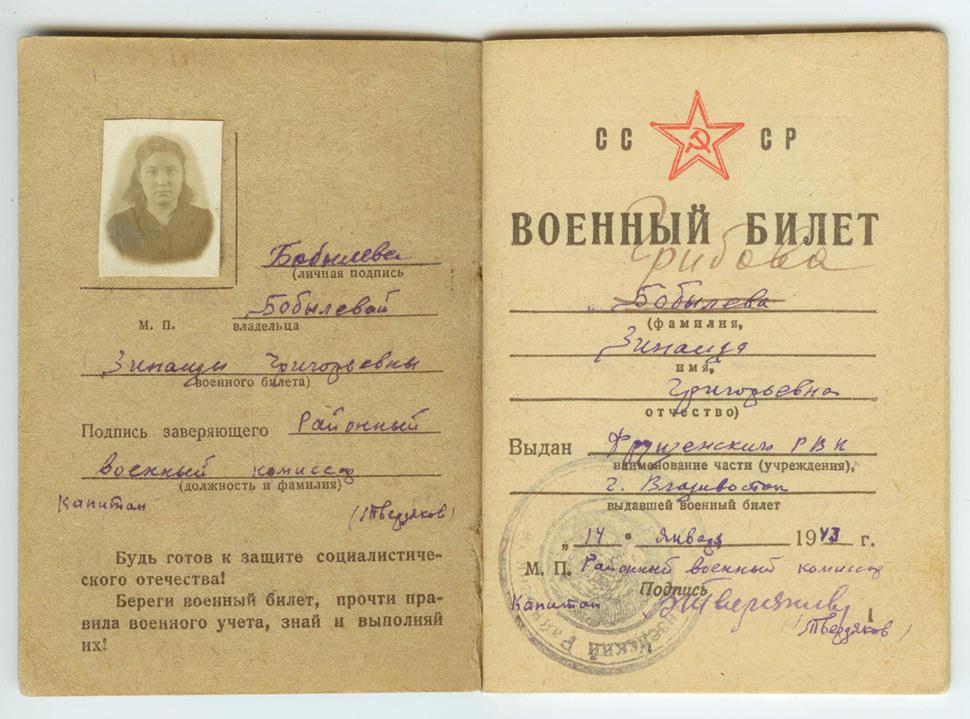 Бобылева
(личная подпись
Бобылевой
М. П. владельца
Зинаиды Григорьевны
военного билета)
Подпись заверяющего Районный
военный комиссар
(должность и фамилия)
Капитан (Твердяков)
Будь готов к защите социалистиче-
ского отечества!
Береги военный билет, прочти пра-
вила военного учета, знай и выполняй
их!
СС СР
ВОЕННЫЙ БИЛЕТ
Грибова
Бобылева
(фамилия,
Зинаида
имя,
Григорьевна
отчество)
Выдан Фрунзенским РВК
наименование части (учреждения),
г. Владивосток
выдавшей военный билет
„ 14 “ Января 1943 г.
М. П. Районный военный комиссар
Подпись
Капитан
1
(Твердяков)